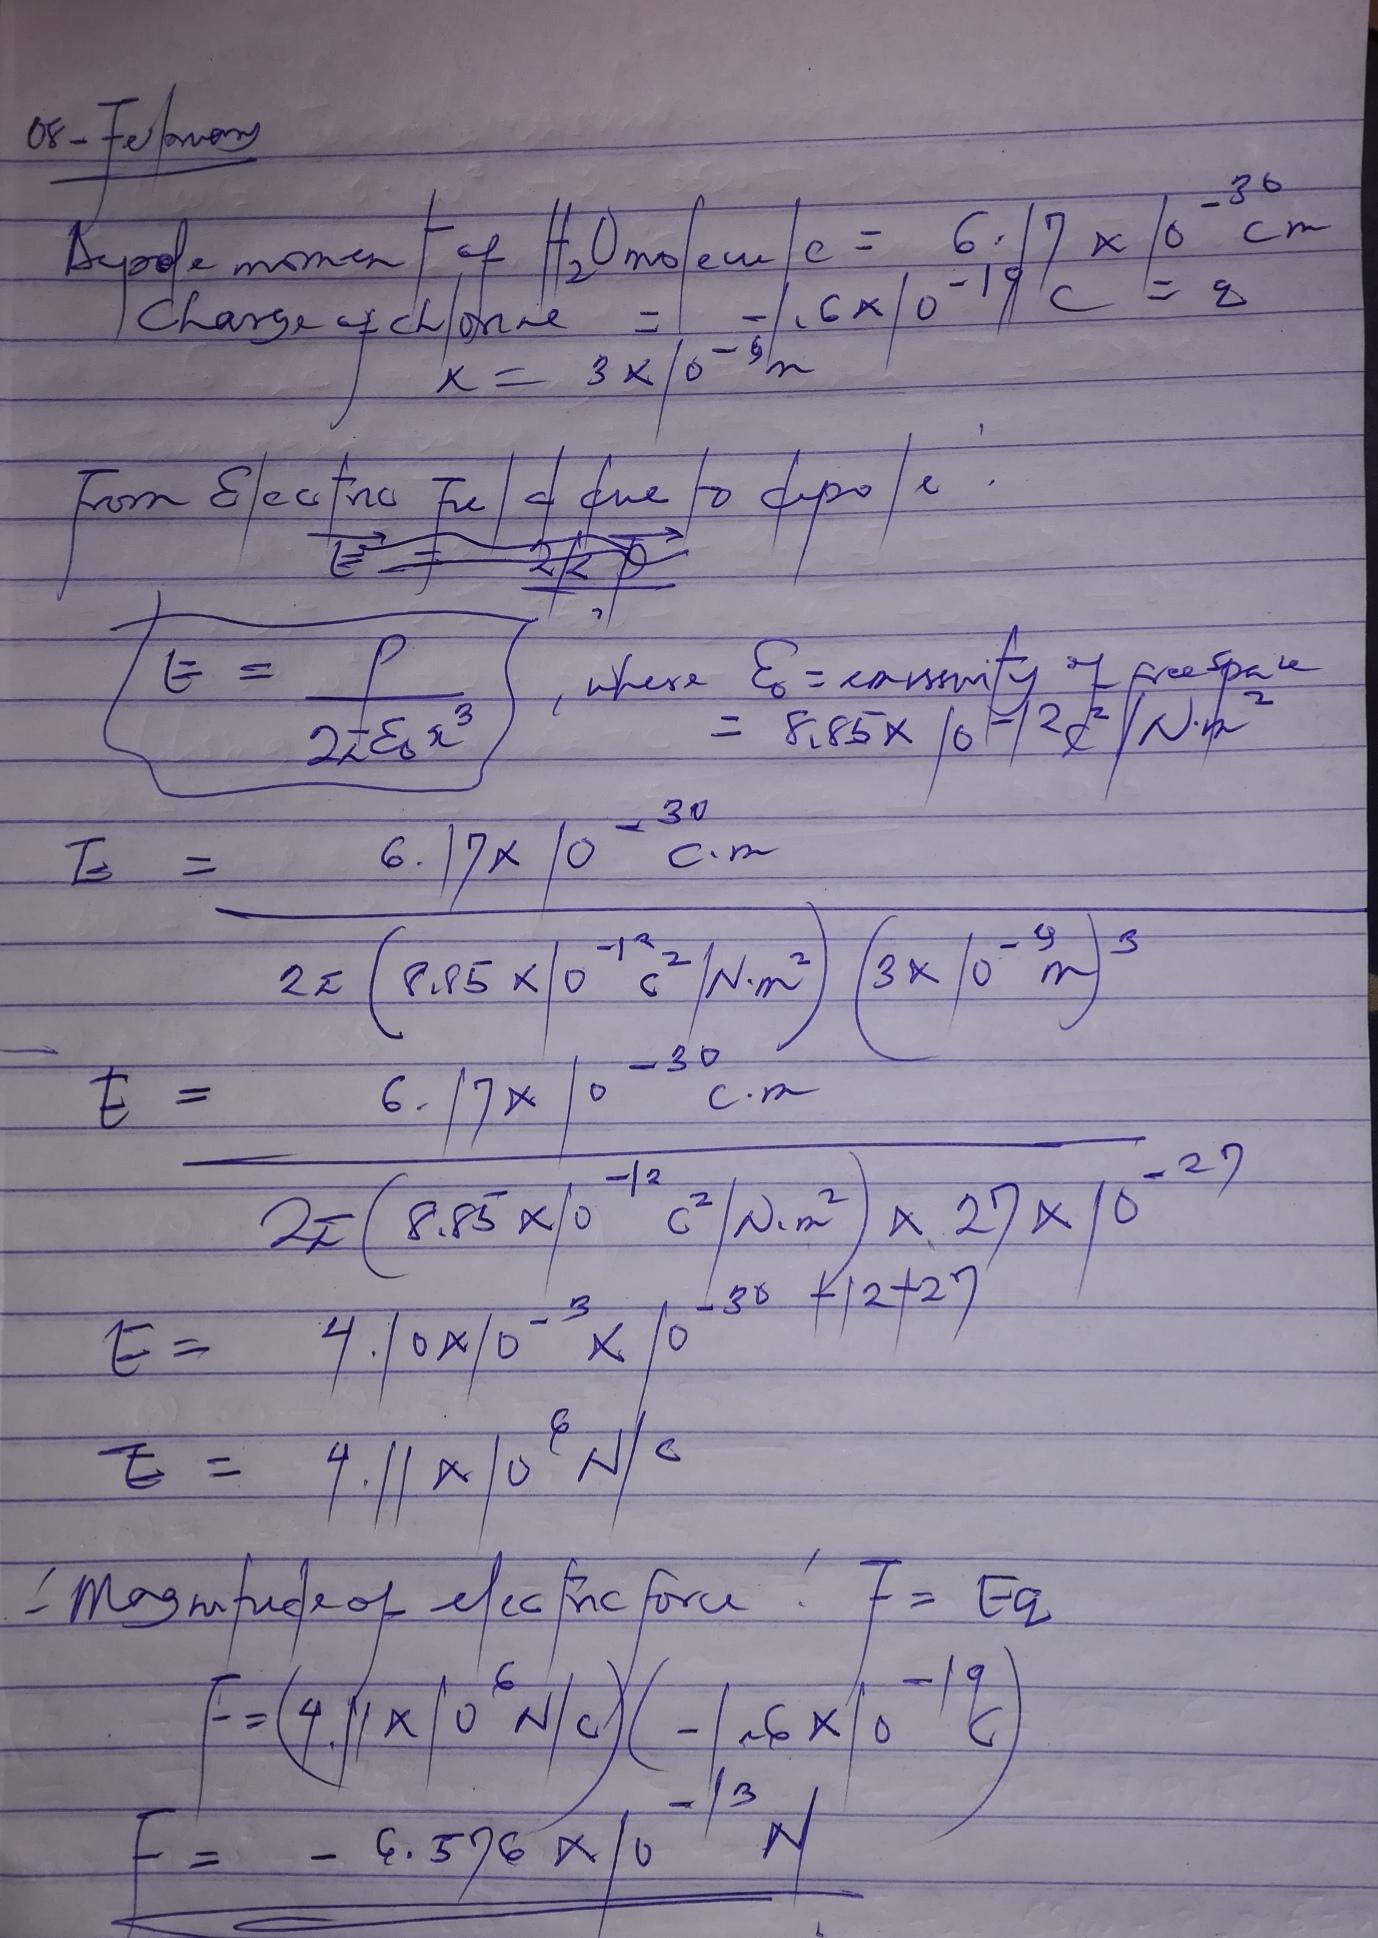 08 - February
Dypole moment of H₂O molecule = 6.17 x 10⁻³⁰ cm
Charge of chlorine = -1.6x10⁻¹⁹ C = q
x = 3x10⁻⁹m
From Electric Field due to dipole:
E = p / 2πε₀x³ , where ε₀ = emissivity of free space
= 8.85x10⁻¹²c²/N.m²
E = 6.17x10⁻³⁰ c.m
2π (8.85x10⁻¹² c²/N.m²) (3x10⁻⁹ m)³
E = 6.17x10⁻³⁰ c.m
2π (8.85x10⁻¹² c²/N.m²) x 27x10⁻²⁷
E = 4.10x10⁻³ x 10⁻³⁰ ⁺¹²⁺²⁷
E = 4.11x10⁶ N/c
∴ Magnitude of electric force: F = Eq
F = (4.11x10⁶ N/c) (-1.6x10⁻¹⁹ C)
F = - 6.576 x 10⁻¹³ N